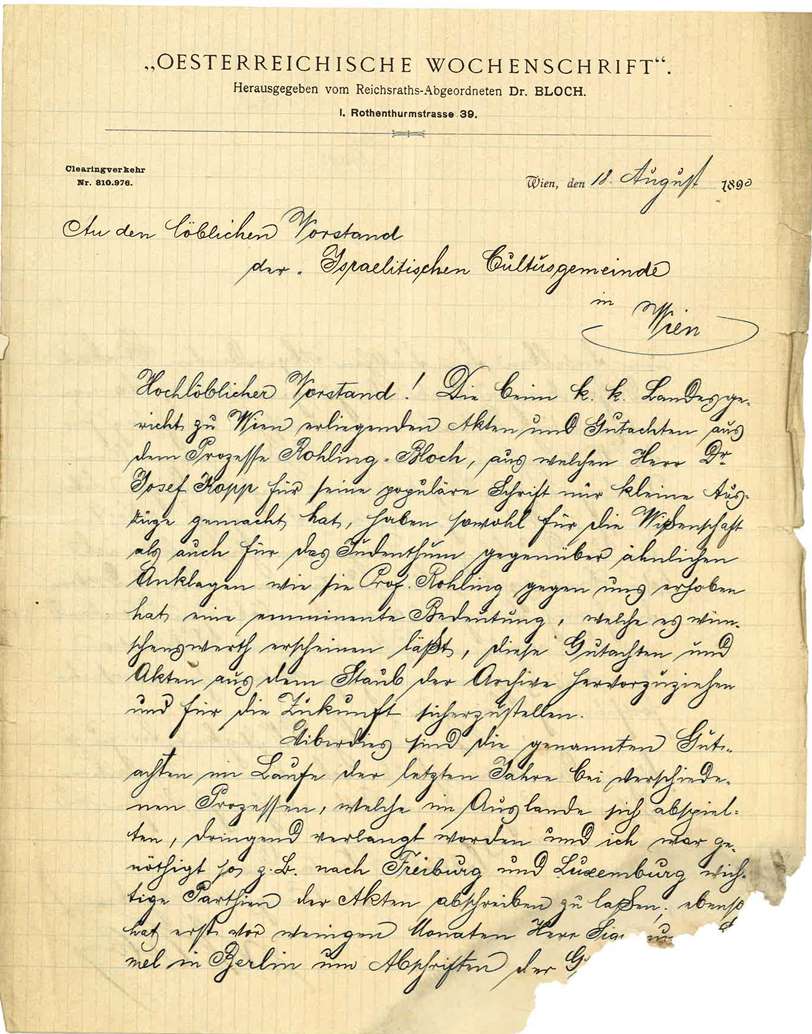 „OESTERREICHISCHE WOCHENSCHRIFT“.
Herausgegeben vom Reichsraths-Abgeordneten Dr. BLOCH.
I. Rothenthurmstrasse 39.
Clearingverkehr
Nr. 810.976.
Wien, den 18. August 1890
An den löblichen Vorstand
der Israelitischen Cultusgemeinde
in Wien
Hochlöblicher Vorstand! Die beim k. k. Landesge-
richt zu Wien erliegenden Akten und Gutachten aus
dem Prozesse Rohling-Bloch, aus welchen Herr Dr.
Josef Kopp für seine populäre Schrift nur kleine Aus-
züge gemacht hat, haben sowohl für die Wißenschaft
als auch für das Judenthum gegenüber ähnlichen
Anklagen wie sie Prof. Rohling gegen uns erhoben
hat eine emminente Bedeutung, welche es wün-
schenswerth erscheinen läßt, diese Gutachten und
Akten aus dem Staub der Archive hervorzuziehen
und für die Zukunft sicherzustellen.
Uiberdies sind die genannten Gut-
achten im Laufe der letzten Jahre bei verschiede-
nen Prozessen, welche im Auslande sich abspiel-
ten, dringend verlangt worden und ich war ge-
nöthigt so z. B. nach Freiburg und Luxemburg wich-
tige Parthien der Akten abschreiben zu laßen; ebenso
hat erst vor wenigen Monaten Herr
mel in Berlin um Abschriften der